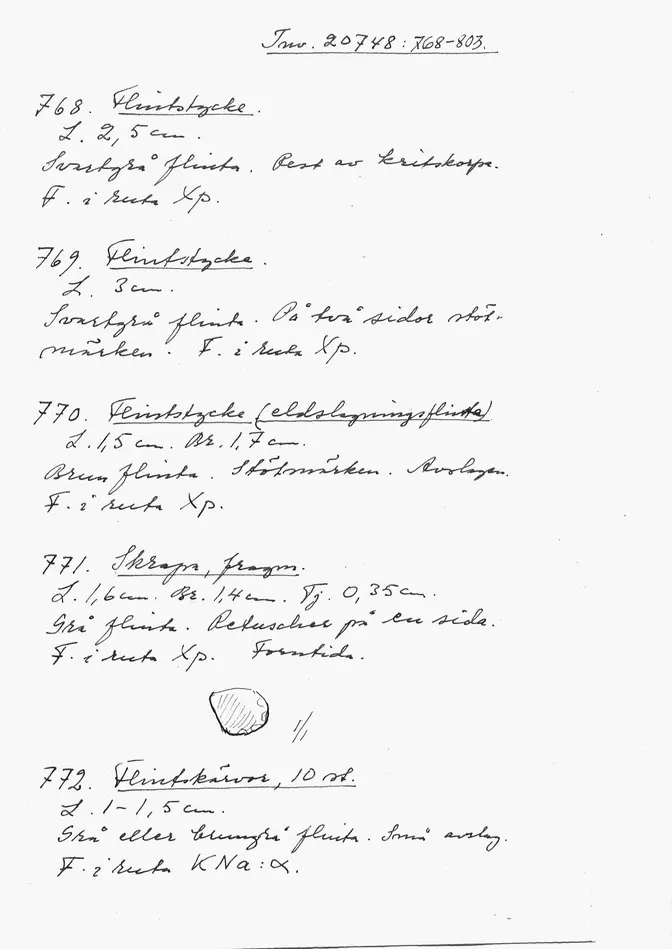 Inv. 20748:768-803.
768. Flintstycke.
L. 2,5 cm.
Svartgrå flinta. Rest av kritskorpa.
F. i ruta Xp.
769. Flintstycke.
L. 3 cm.
Svartgrå flinta. På två sidor stöt-
märken. F. i ruta Xp.
770. Flintstycke (eldslagningsflinta)
L. 1,5 cm. Br. 1,7 cm.
Brun flinta. Stötmärken. Avslagen.
F. i ruta Xp.
771. Skrapa, fragm.
L. 1,6 cm. Br. 1,4 cm. Tj. 0,35 cm.
Grå flinta. Retuscher på en sida.
F. i ruta Xp. Forntida.
1/1
772. Flintskärvor, 10 st.
L. 1-1,5 cm.
Grå eller brungrå flinta. Små avslag.
F. i ruta KNa:α.